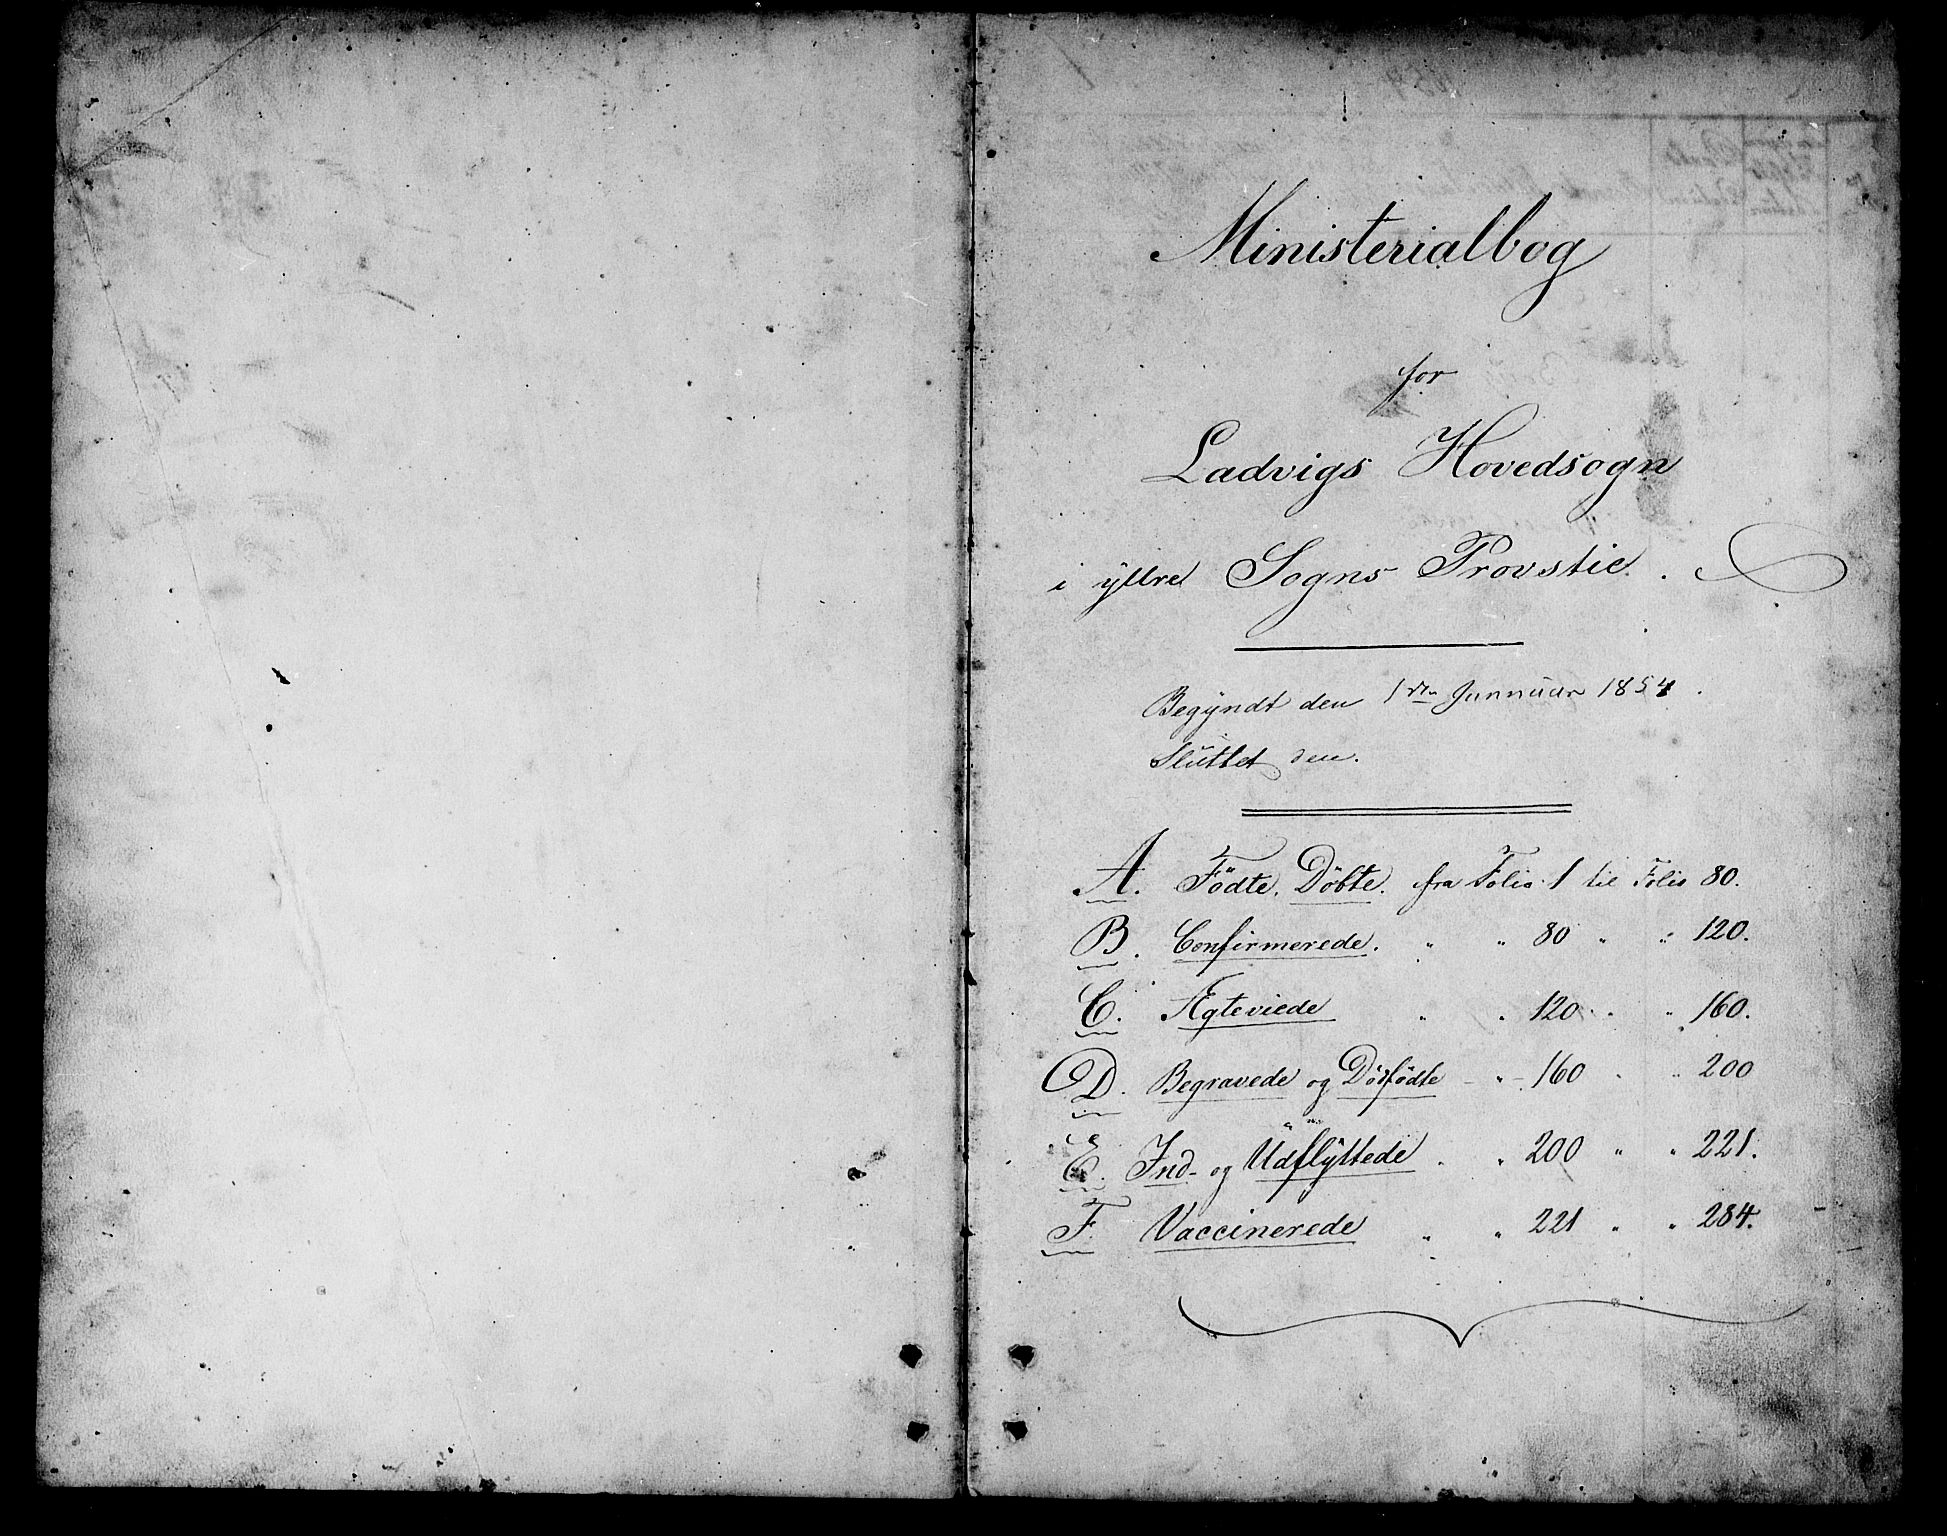 Ministerialbog
for
Ladvigs Hovedsogn
i yttre Sogns Provstie.
Begyndt den 1ste Januuar 1854.
Sluttet den.
A. Födte, Döbte. fra Folio 1 til Folio 80.
B. Confirmerede. " " 80 " " 120.
C. Ægteviede " " 120 " " 160.
D. Begravede og Dödfödte - " - 160 " " 200
E. Ind- og Udflyttede " " 200 " " 221.
F. Vaccinerede " " 221 " " 284.